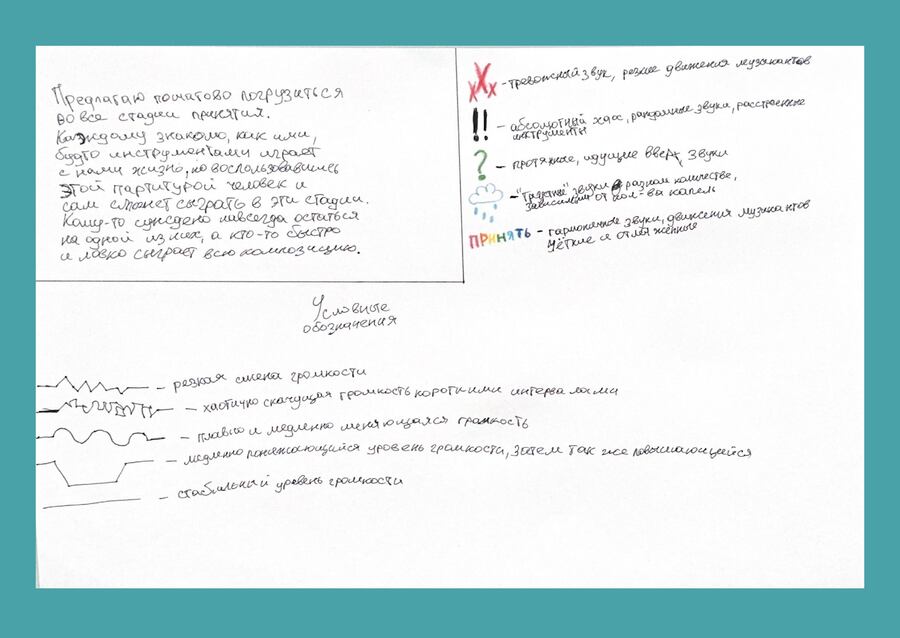 Предлагаю поэтапово погрузиться
во все стадии принятия.
Каждому знакомо, как ими,
будто инструментами играет
с нами жизнь, но воспользовавшись
этой партитурой человек и
сам сможет сыграть в эти стадии.
Кому-то суждено навсегда остаться
на одной из них, а кто-то быстро
и ловко сыграет всю композицию.
ххх - тревожный звук, резкие движения музыкантов
!! - абсолютный хаос, рандомные звуки, расстроенные
инструменты
? - протяжные, идущие вверх, звуки
- звуки в разном количестве,
зависимим от кол-ва капель
ПРИНЯТЬ - гармоничные звуки, движения музыкантов
чёткие и отлаженные
Условные
обозначения
- резкая смена громкости
- хаотично скачущая громкость короткими интервалами
- плавно и медленно меняющаяся громкость
- медленно понижающийся уровень громкости, затем так же повышающийся
- стабильный уровень громкости